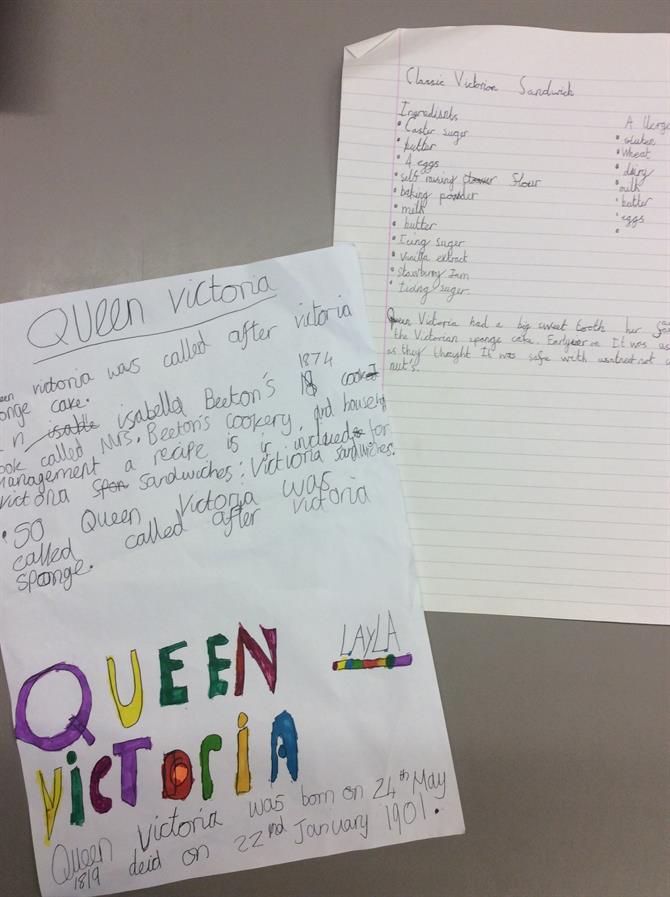 QUEEN Victoria
victoria was called after victoria
cake.
isabella Beeton's 1874
called Mrs. Beeton's Cookery and household
Management a recipe is included for
Victoria sandwiches: Victioria sandwiches.
• SO Queen Victoria was
called called after victoria
sponge.
LAYLA
QUEEN
VICTORIA
Queen Victoria was born on 24th May
1819 deid on 22nd January 1901.
Classic Victorian Sandwich
Ingredients
• Caster sugar
• butter
• 4 eggs
• self raising flour
• baking powder
• milk
• butter
• Icing sugar
• Vanilla extract
• Strawberry Jam
• Iciing sugar.
• gluten
• Wheat
• dairy
• milk
• butter
• eggs
•
Queen Victoria had a big sweet tooth her
the Victorian sponge cake. It was
as they thought It was safe with
nut's.